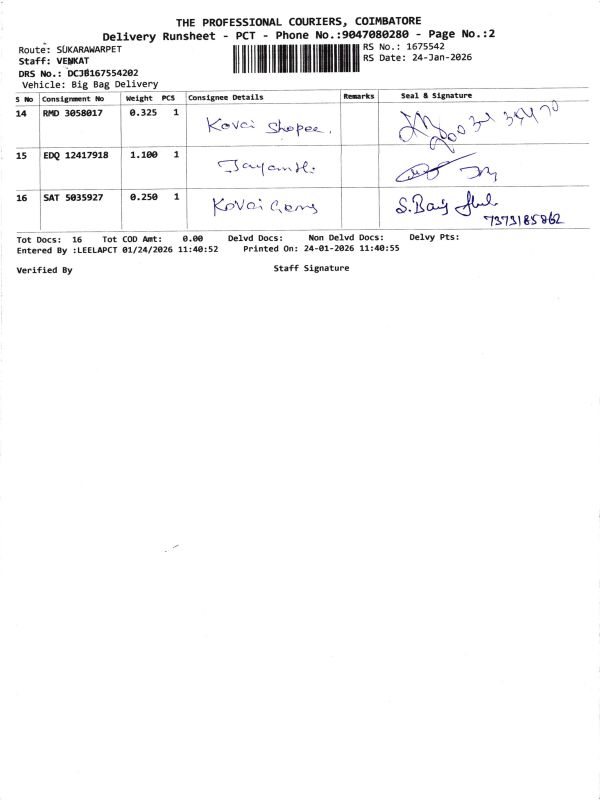 THE PROFESSIONAL COURIERS, COIMBATORE
Delivery Runsheet - PCT - Phone No.:9047080280 - Page No.:2
Route: SUKARAWARPET
RS No.: 1675542
Staff: VENKAT
RS Date: 24-Jan-2026
DRS No.: DCJB167554202
Vehicle: Big Bag Delivery
S No Consignment No Weight PCS Consignee Details Remarks Seal & Signature
14 RMD 3058017 0.325 1 Kovai Shopee.
15 EDQ 12417918 1.100 1
16 SAT 5035927 0.250 1 Kovai Gems
7373185862
Tot Docs: 16 Tot COD Amt: 0.00 Delvd Docs: Non Delvd Docs: Delvy Pts:
Entered By :LEELAPCT 01/24/2026 11:40:52 Printed On: 24-01-2026 11:40:55
Verified By Staff Signature